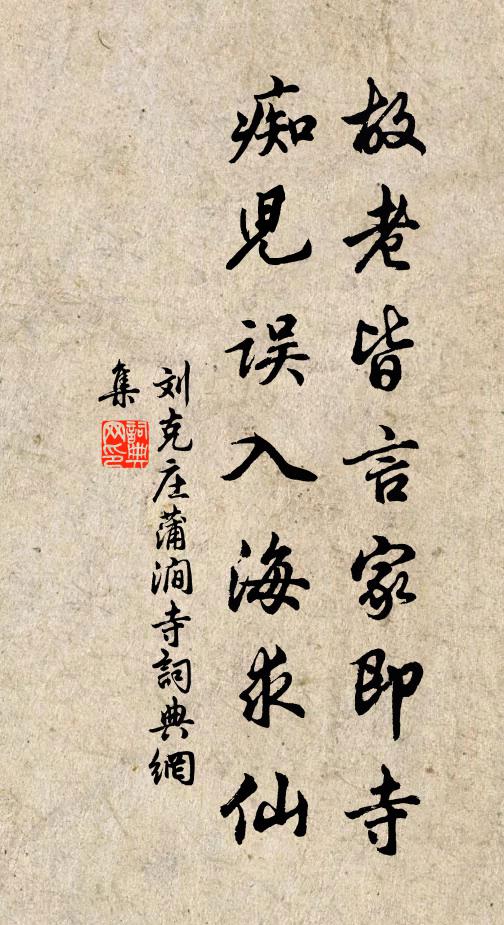 故老皆言家即寺
痴児误入海求仙
刘克庄蒲涧寺詞典網
集
詞典
网印